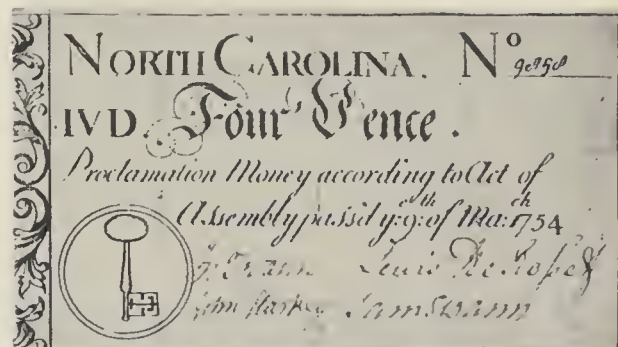 NORTH CAROLINA. Nº
IVD. Four Pence.
Proclamation Money according to Act of
Assembly pass'd yᵉ: 9ᵗʰ: of Ma:ᶜʰ 1754
Lewis De Rosset
John Starkey Sam Swann